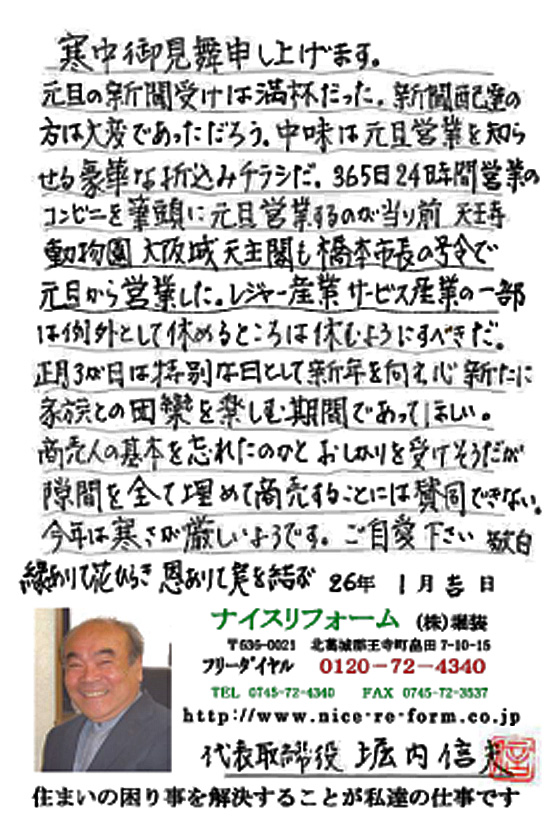 寒中御見舞申し上げます。
元旦の新聞受けは満杯だった。新聞配達の
方は大変であっただろう。中味は元旦営業を知ら
せる豪華な折込みチラシだ。365日24時間営業の
コンビニを筆頭に元旦営業するのが当り前 天王寺
動物園 大阪城 天主閣も橋本市長の号令で
元旦から営業した。レジャー産業 サービス産業の一部
は例外として休めるところは休むようにすべきだ。
正月3が日は特別な日として新年を向え心 新たに
家族との団欒を楽しむ期間であってほしい。
商売人の基本を忘れたのかと おしかりを受けそうだが
隙間を全て埋めて商売することには賛同できない。
今年は寒さが厳しいようです。ご自愛下さい 敬白
縁ありて花ひらき 恩ありて実を結ぶ 26年 1月 吉日
ナイスリフォーム (株)堀装
〒636-0021 北葛城郡王寺町畠田 7-10-15
フリーダイヤル 0120-72-4340
TEL 0745-72-4340 FAX 0745-72-3537
http://www.nice-re-form.co.jp
代表取締役 堀内信
住まいの困り事を解決することが私達の仕事です